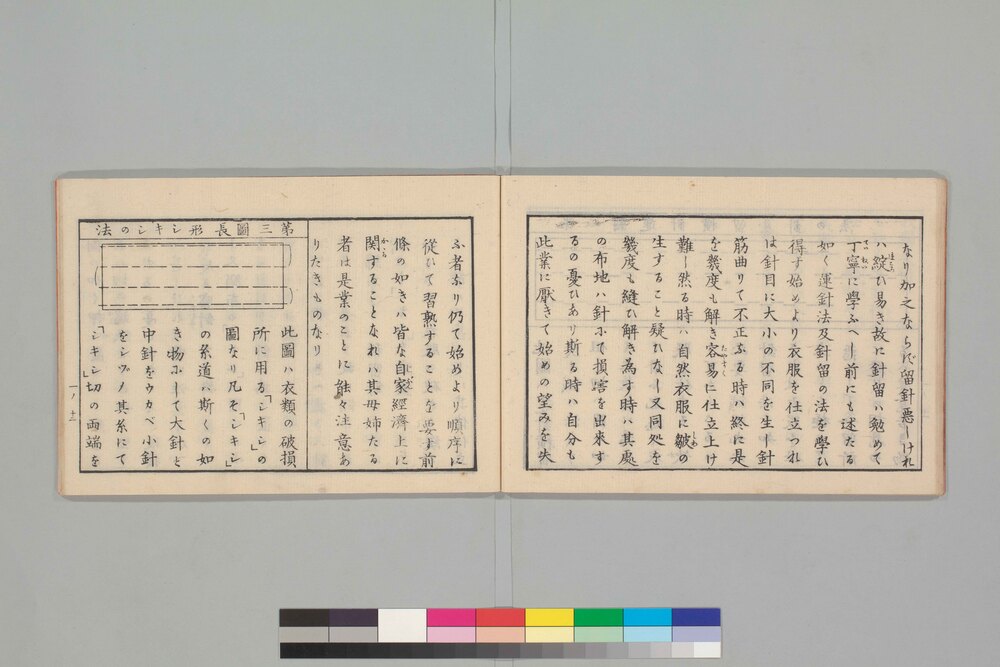 なり加之ならず留針悪しけれ
ハ綻ひ易き故に針留ハ勉めて
丁寧に學ふへし前にも述たる
如く運針法及針留の法を學ひ
得す始めより衣服を仕立つれ
は針目に大小の不同を生し針
筋曲りて不正ふる時ハ終に是
を幾度も解き容易に仕立上け
難し然る時ハ自然衣服に皺の
生すること疑ひなし又同処を
幾度も縫ひ解き為す時ハ其處
の布地ハ針ホて損害を出來す
るの憂ひあり斯る時ハ自分も
此業に厭きて始めの望みを失
ふ者ふり仍て始めより順序に
從ひて習熟することを要す前
條の如きハ皆な自家經濟上に
関することなれハ其母姉たる
者は是業のことに能々注意あ
りたきものなり
第三圖長形シキシの法
此圖ハ衣類の破損
所に用る「シキシ」の
圖なり凡そ「シキシ」
の糸道ハ斯くの如
き物ホして大針と
中針をウカベ小針
をシヅメ其糸にて
「シキシ」切の両端を
一ノ十三